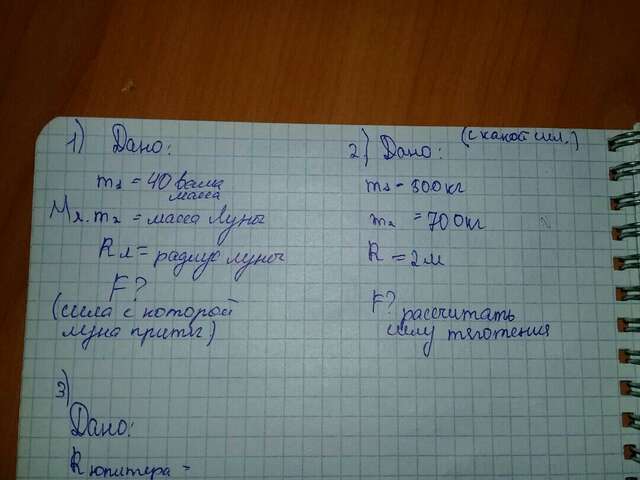 1) Дано:
m₁ = 40 ваша
масса
Mл. m₂ = масса Луны
Rл = радиус луны
F?
(сила с которой
луна притяг)
2) Дано:
(с какой сил.)
m₁ - 300кг
m₂ = 700кг
R = 2м
F? рассчитать
силу тяготения
3)
Дано:
R юпитера =